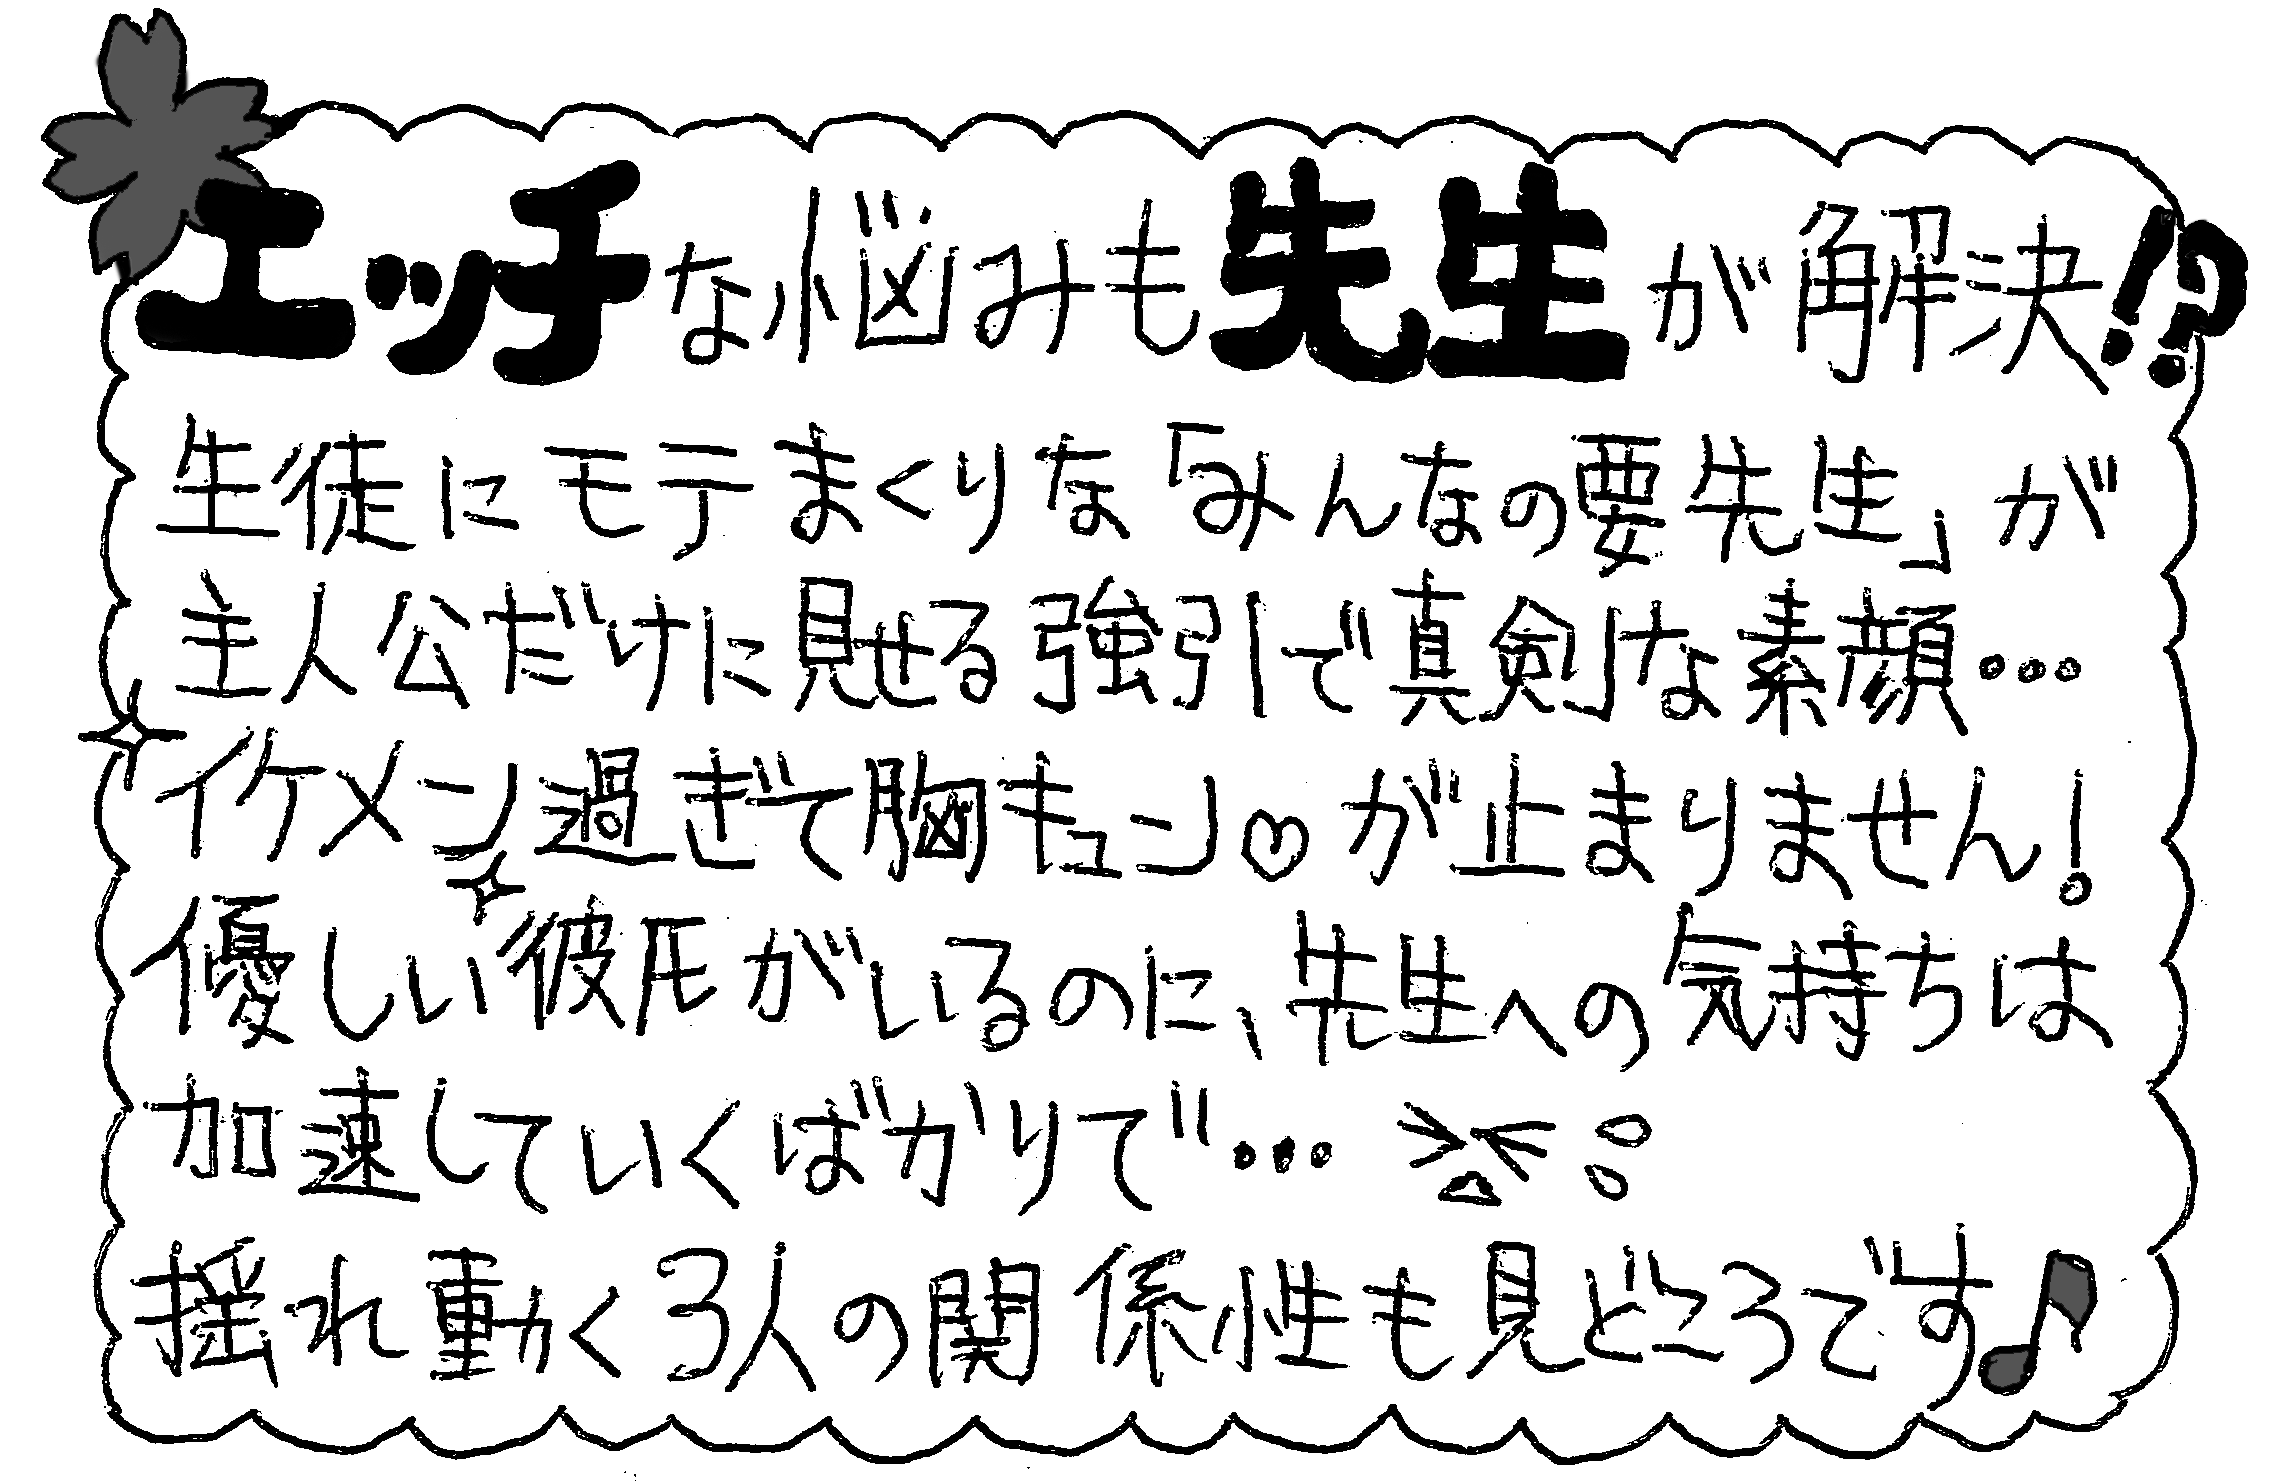 エッチな悩みも先生が解決!?
生徒にモテまくりな「みんなの要先生」が
主人公だけに見せる強引で真剣な素顔…
イケメン過ぎて胸キュン♡が止まりません!
優しい彼氏がいるのに、先生への気持ちは
加速していくばかりで…
揺れ動く3人の関係性も見どころです♪